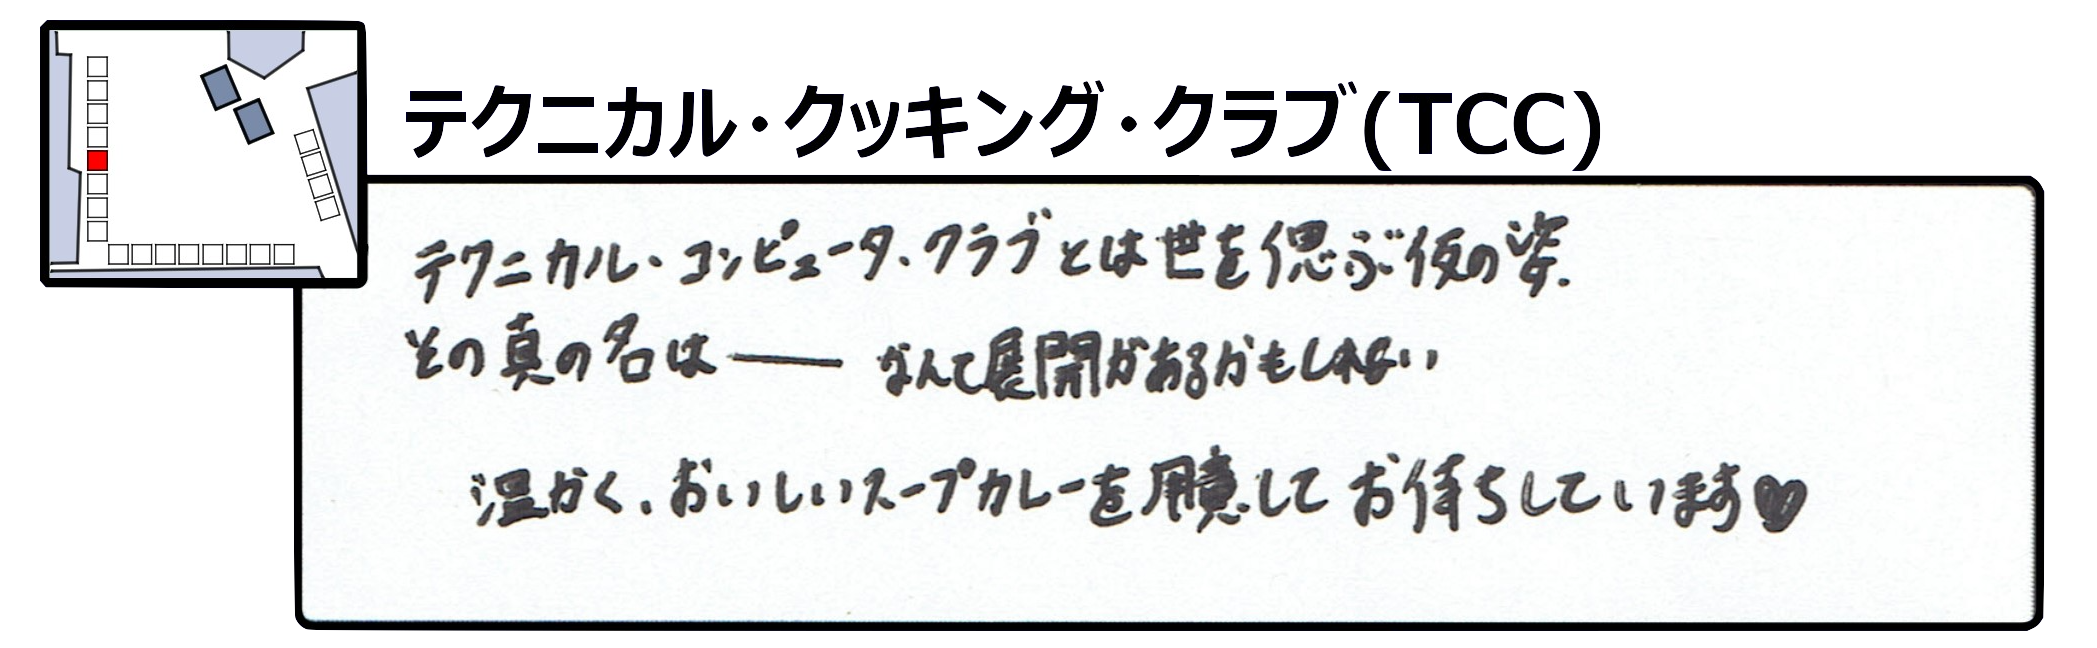 テクニカル・クッキング・クラブ(TCC)
テクニカル・コンピュータ・クラブとは世を偲ぶ仮の姿.
その真の名は―― なんて展開があるかもしれない
温かく、おいしいスープカレーを用意して お待ちしています♥